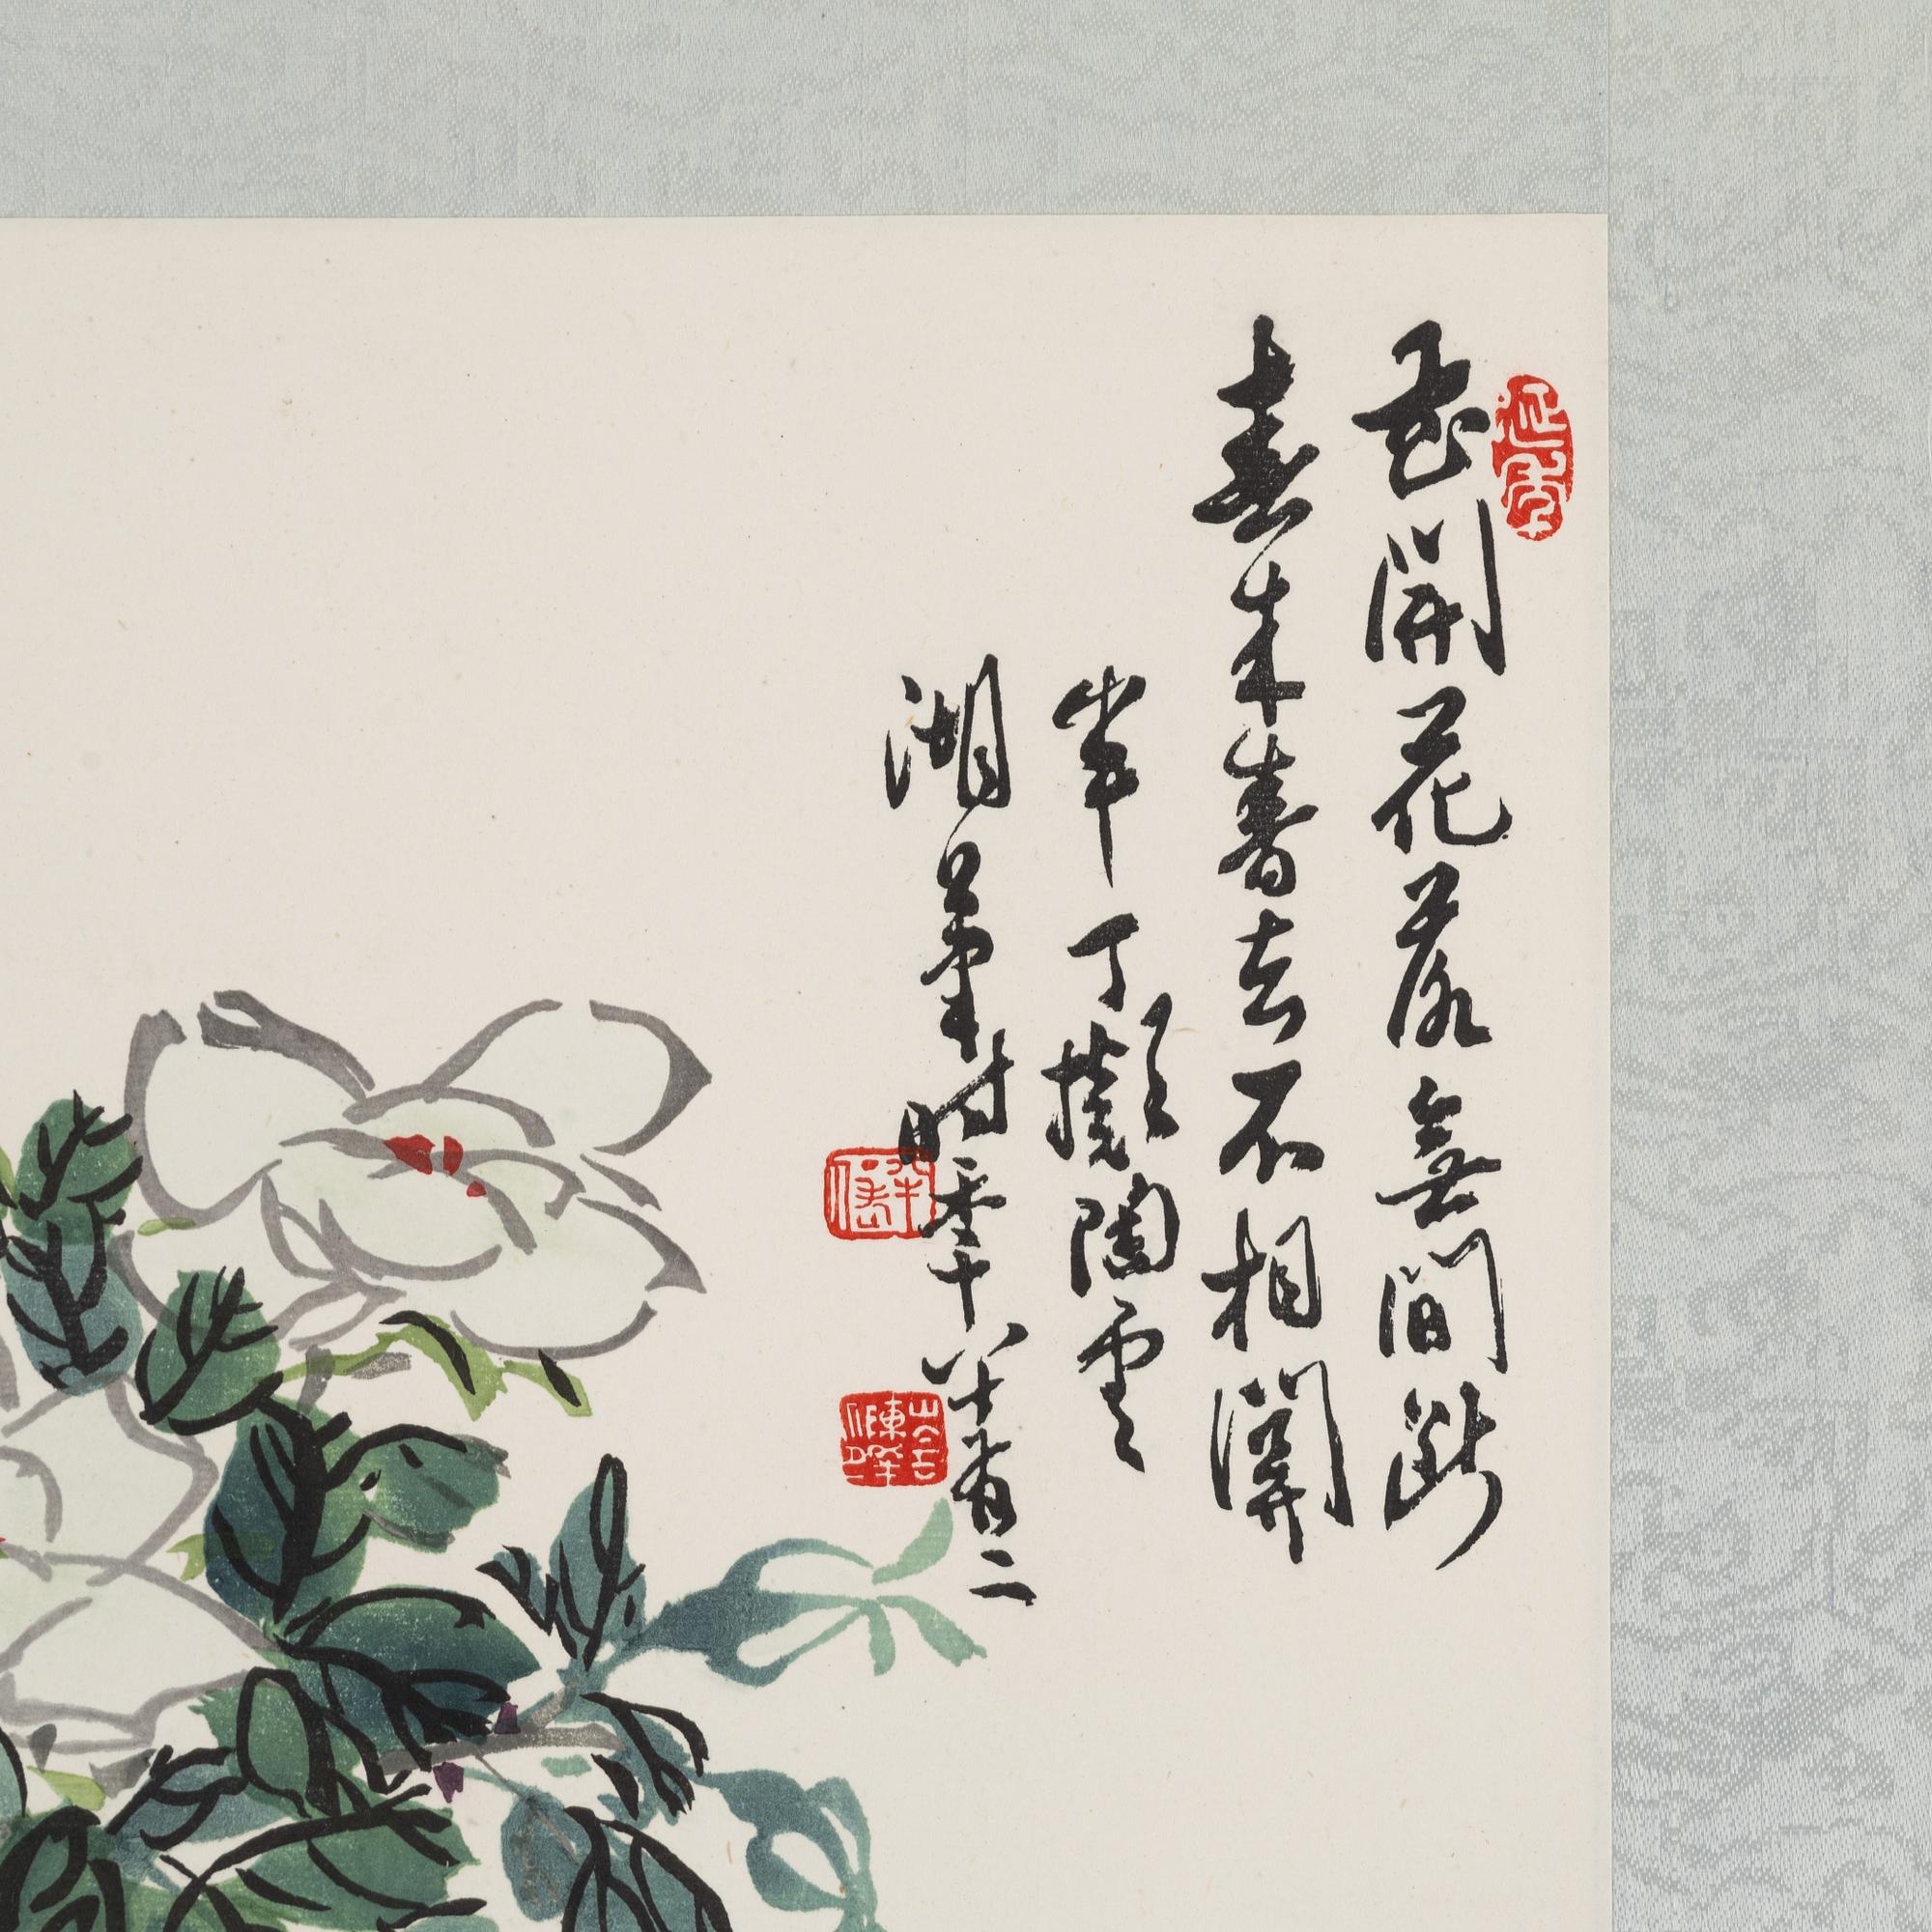 花開花落無間斷
春來春去不相關
半丁擬陶雲
湖筆時年八十有二